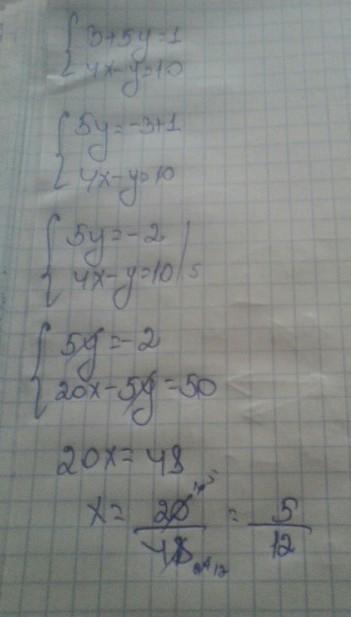 3+5y=1
4x-y=10
5y=-3+1
4x-y=10
5y=-2
4x-y=10 | 5
5y=-2
20x-5y=50
20x=48
x= 20/48 = 5/12